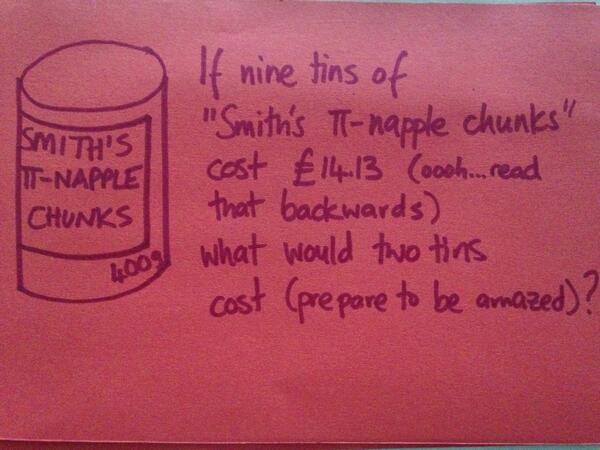 SMITH'S
π-NAPPLE
CHUNKS
400g
If nine tins of
"Smith's π-napple chunks"
cost £14.13 (oooh...read
that backwards)
what would two tins
cost (prepare to be amazed)?